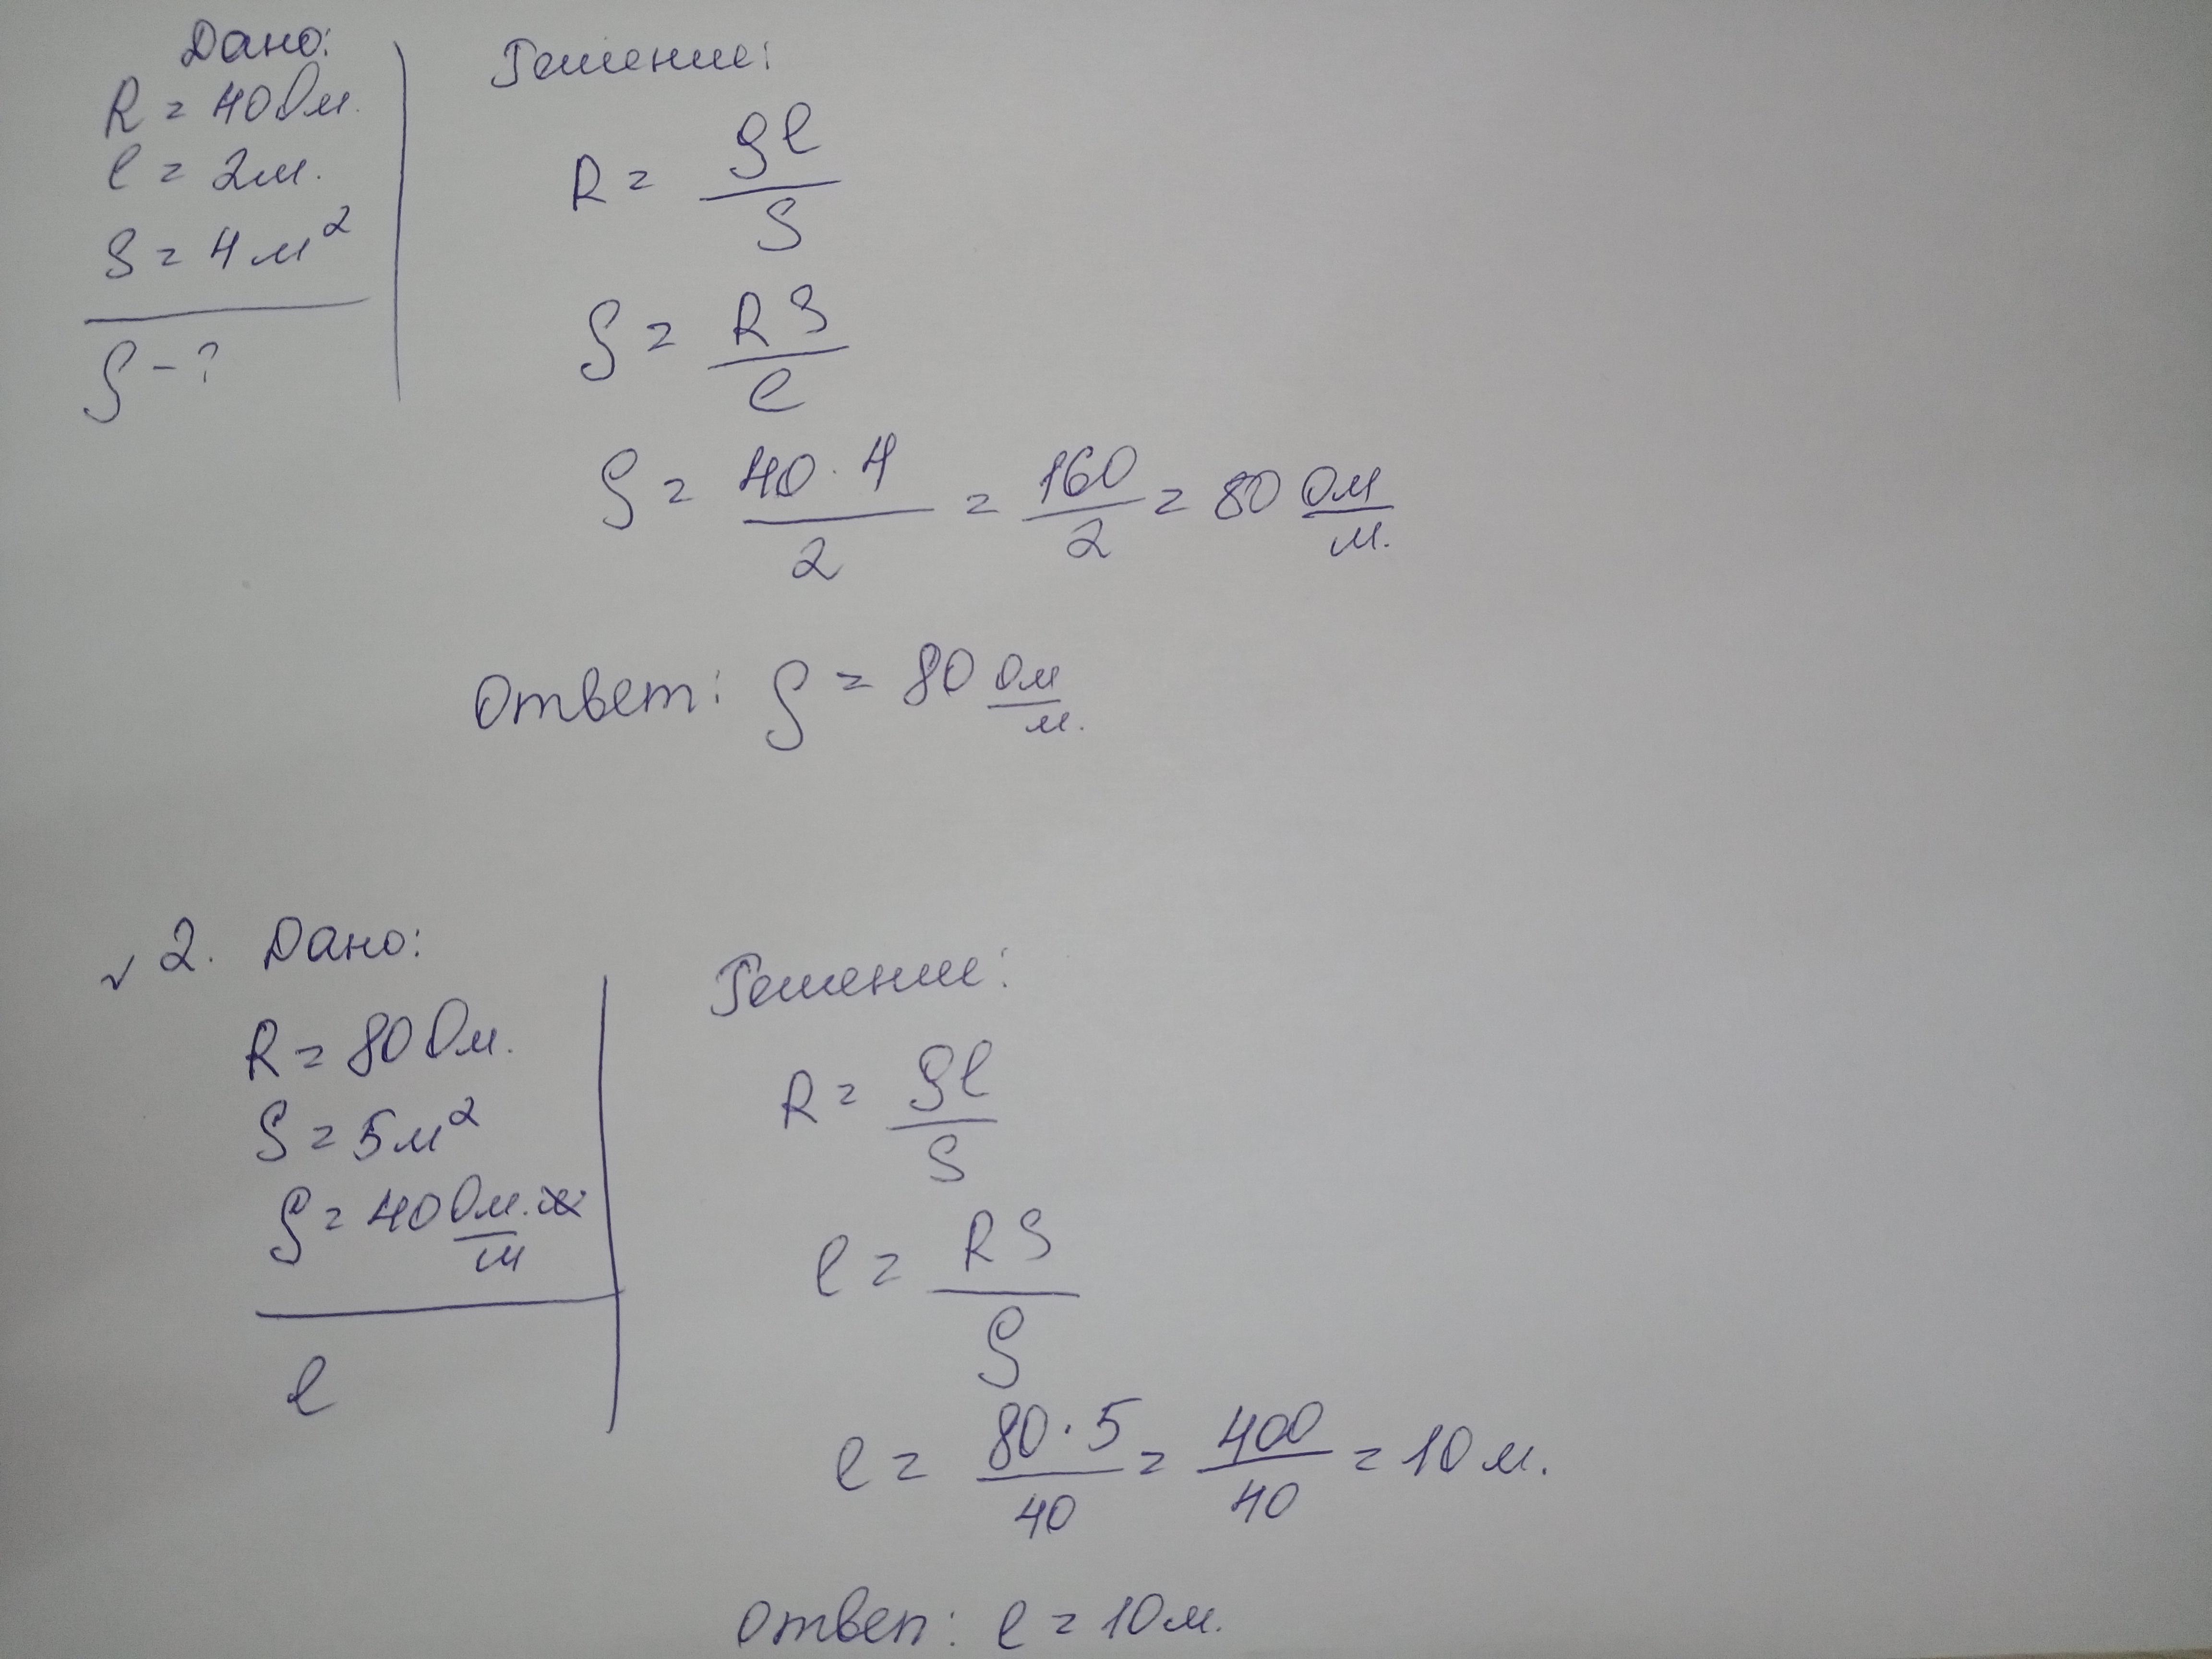 Дано:
R = 40 Ом.
l = 2 м.
S = 4 м²
ρ - ?
Решение:
R = ρl / S
ρ = RS / l
ρ = 40 · 4 / 2 = 160 / 2 = 80 Ом / м.
Ответ: ρ = 80 Ом / м.
√2. Дано:
R = 80 Ом.
S = 5 м²
ρ = 40 Ом. / м
l
Решение:
R = ρl / S
l = RS / ρ
l = 80 · 5 / 40 = 400 / 40 = 10 м.
Ответ: l = 10 м.